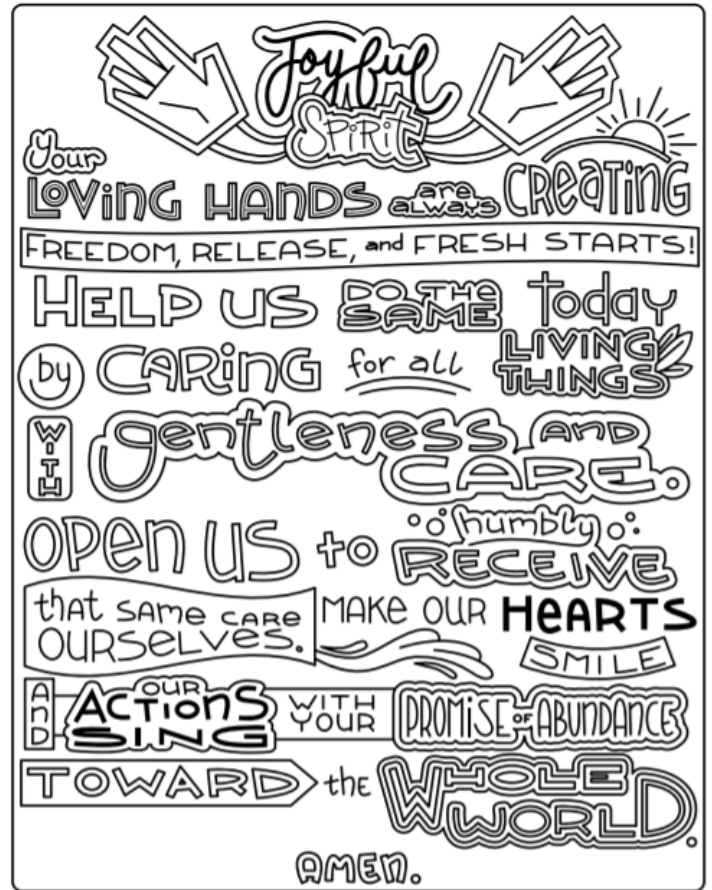 Joyful
SPiRit
Your
LoViNG HANDS are always CReATiNG
FREEDOM, RELEASE, and FRESH STARTS!
HELP US DO THE SAME today
by CARiNG for all LIVING THINGS
WITH gentleness AND CARE.
OPen US to humbly RECEIVE
that SAMe CARE OURSeLVeS. MAKe OUR HeARTS SMILE
AND OUR ACTiONS SING WITH YOUR PROMiSE OF ABUNDANCE
TOWARD the WHOLE WORLD.
AMEN.